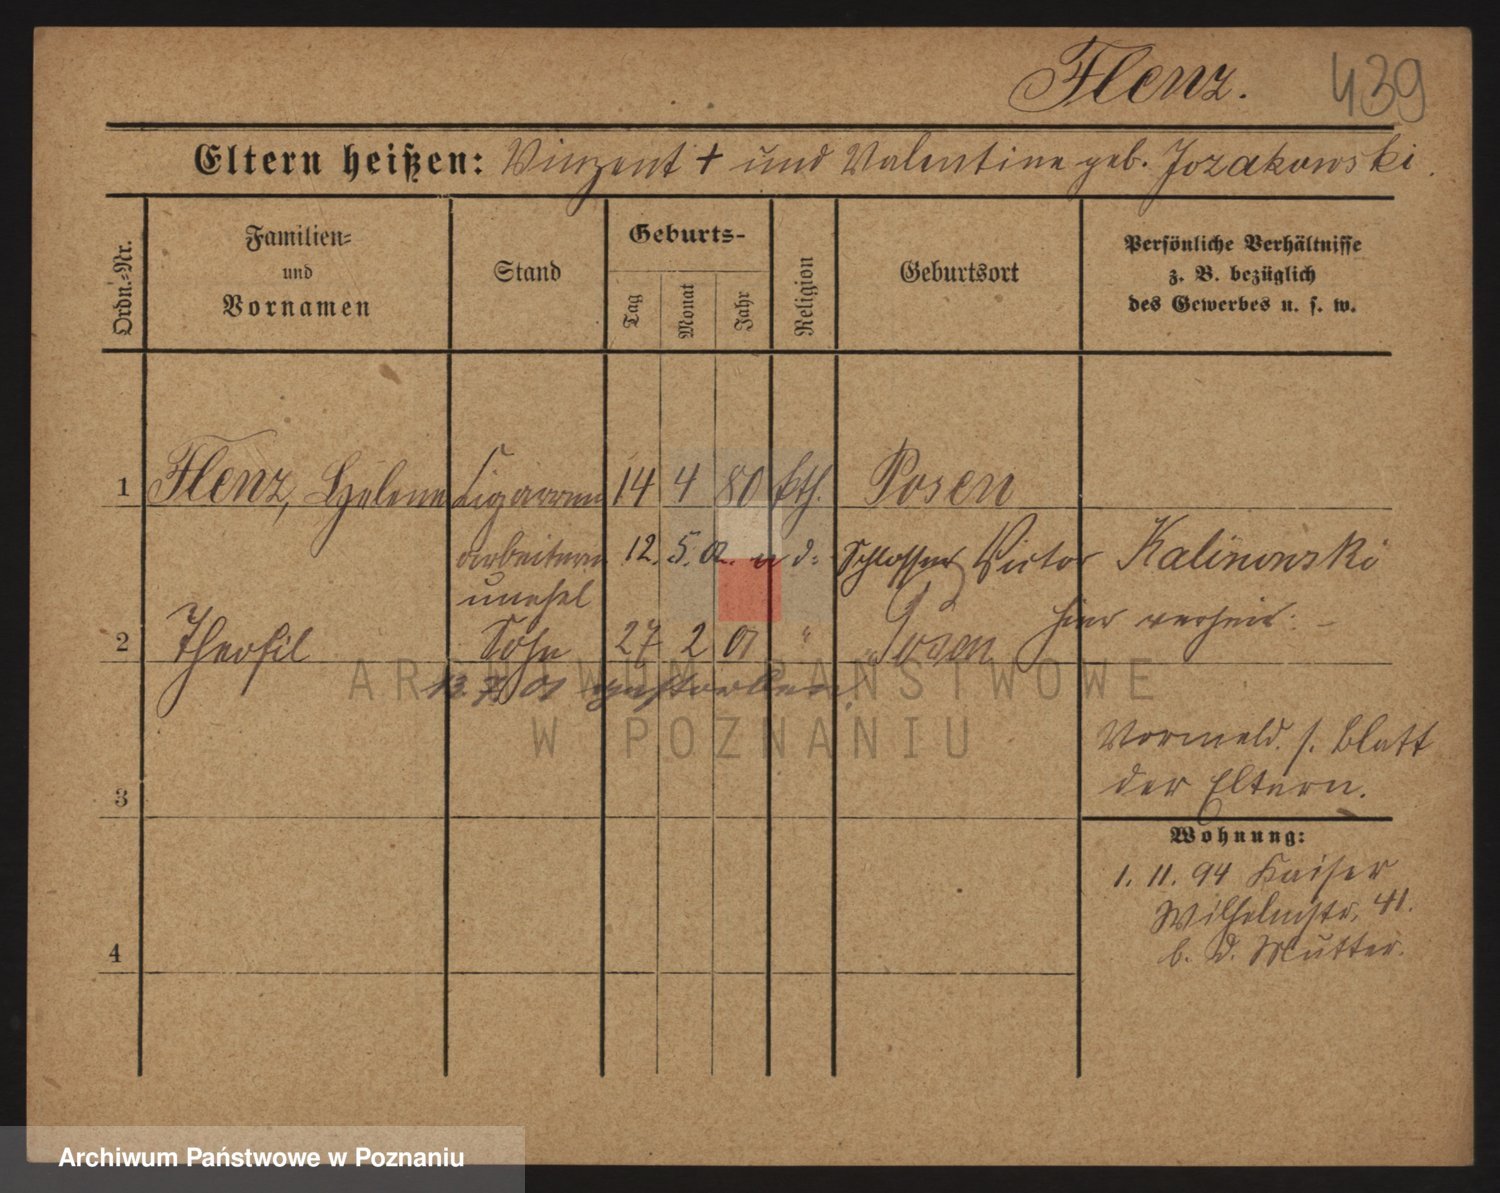 Flenz. 439
Eltern heißen: Vinzent + und Valentine geb. Jozakowski.
Ordn.-Nr.
Familien- und Vornamen
Stand
Geburts-
Tag
Monat
Jahr
Religion
Geburtsort
Persönliche Verhältnisse
z. B. bezüglich
des Gewerbes u. s. w.
1 Flenz, Helene Cigarren 14 4 80 kth. Posen
arbeiterin 12. 5. 02. m. d. Schlosser Victor Kalinowski
unehel hier verheir. –
2 Theofil Sohn 27 2 01 " Posen
13. 7. 01 gestorben.
ARCHIWUM PAŃSTWOWE
W POZNANIU
Vormeld. s. Blatt
der Eltern.
3
Wohnung:
1. 11. 94 Kaiser
Wilhelmstr. 41.
b. d. Mutter.
4
Archiwum Państwowe w Poznaniu